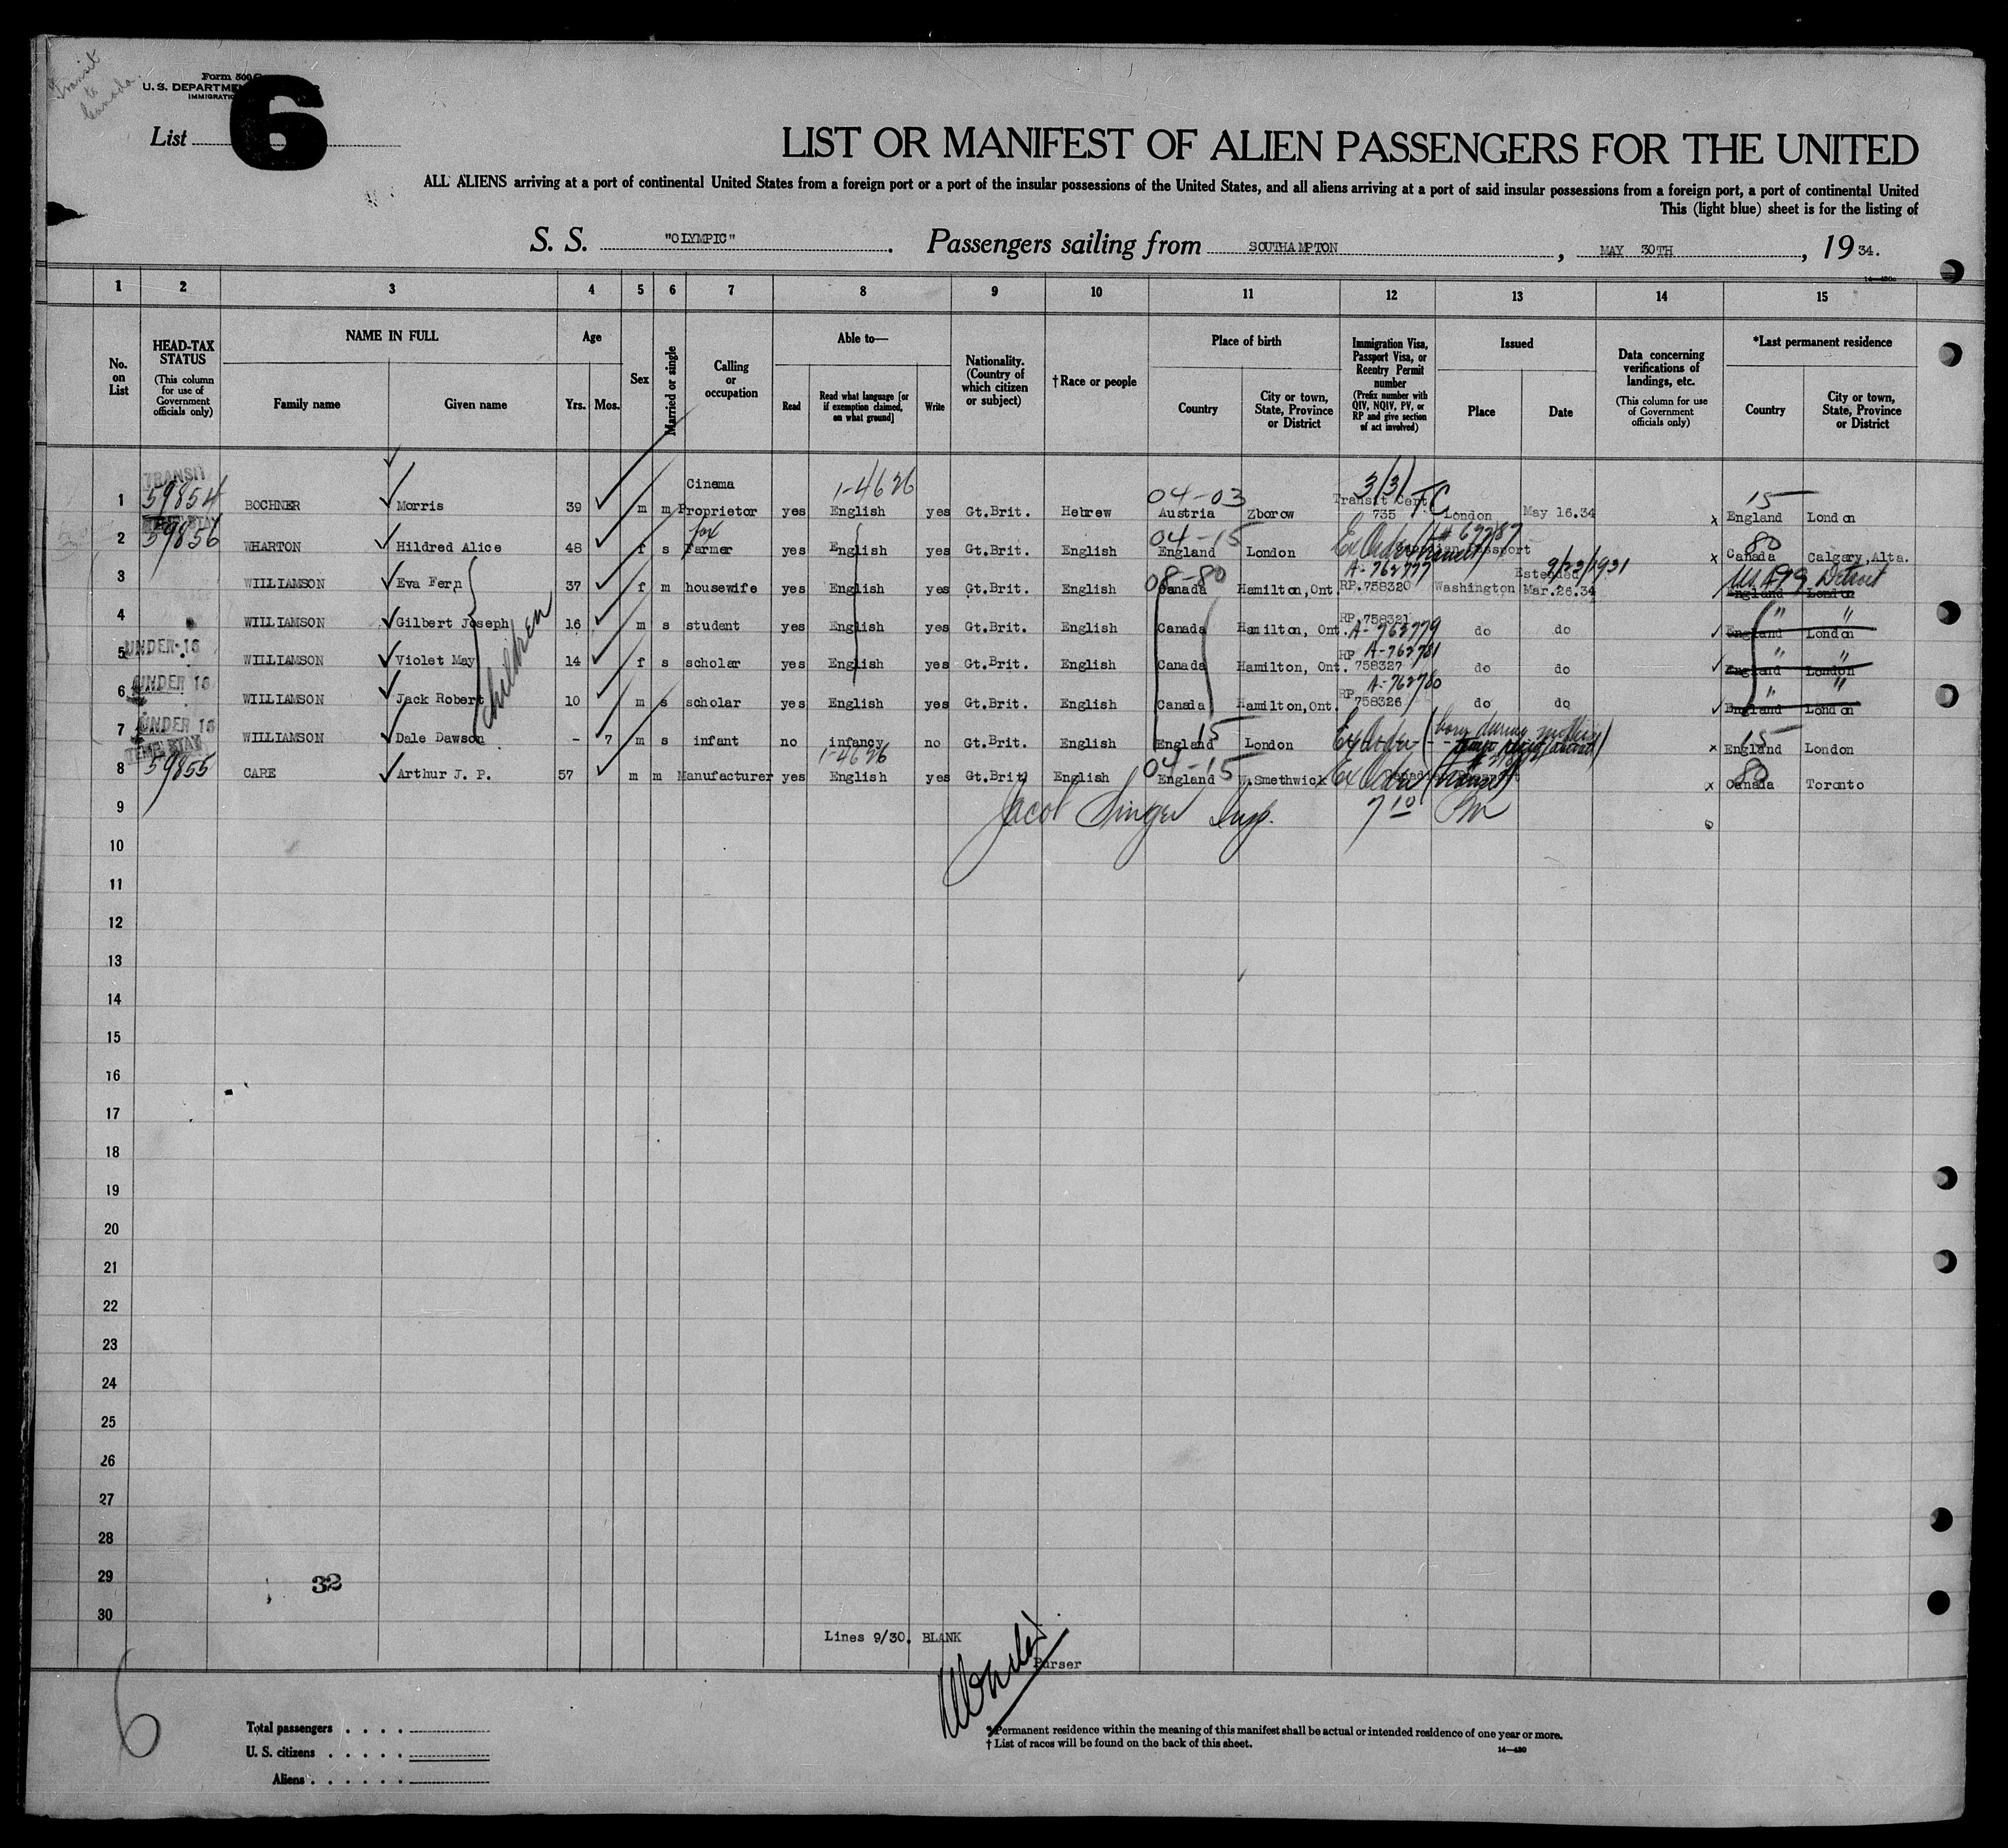 Transit
to
Canada
Form 500
U. S. DEPARTME
IMMIGRATIO
List 6
LIST OR MANIFEST OF ALIEN PASSENGERS FOR THE UNITED
ALL ALIENS arriving at a port of continental United States from a foreign port or a port of the insular possessions of the United States, and all aliens arriving at a port of said insular possessions from a foreign port, a port of continental United
This (light blue) sheet is for the listing of
S. S. "OLYMPIC". Passengers sailing from SOUTHAMPTON, MAY 30TH, 19 34.
1 2 3 4 5 6 7 8 9 10 11 12 13 14 15
No. on List
HEAD-TAX STATUS (This column for use of Government officials only)
NAME IN FULL
Family name
Given name
Age
Yrs. Mos.
Sex
Married or single
Calling or occupation
Able to—
Read
Read what language [or if exemption claimed, on what ground]
Write
Nationality. (Country of which citizen or subject)
†Race or people
Place of birth
Country
City or town, State, Province or District
Immigration Visa, Passport Visa, or Reentry Permit number (Prefix number with QIV, NQIV, PV, or RP and give section of act involved)
Issued
Place
Date
Data concerning verifications of landings, etc. (This column for use of Government officials only)
*Last permanent residence
Country
City or town, State, Province or District
TRANSIT
1-4626 04-03 3(3) TC 15
1 59854 BOCHNER Morris 39 m m Cinema Proprietor yes English yes Gt.Brit. Hebrew Austria Zborow Transit Cert. 735 London May 16.34 x England London
04-15 80
2 59856 WHARTON Hildred Alice 48 f s fox Farmer yes English yes Gt.Brit. English England London Passport x Canada Calgary,Alta.
08-80 A-762777 9/23/1931 U.S.A 99 Detroit
3 WILLIAMSON Eva Fern 37 f m housewife yes English yes Gt.Brit. English Canada Hamilton,Ont. RP.758320 Washington Extended Mar.26.34 England London
4 WILLIAMSON Gilbert Joseph 16 m s student yes English yes Gt.Brit. English Canada Hamilton, Ont. RP 758321 A-762779 do do England London " "
UNDER 16
5 WILLIAMSON Violet May 14 f s scholar yes English yes Gt.Brit. English Canada Hamilton, Ont. RP 758327 A-762781 do do England London " "
UNDER 16
6 WILLIAMSON Jack Robert 10 m s scholar yes English yes Gt.Brit. English Canada Hamilton,Ont. RP 758326 A-762780 do do England London " "
children
UNDER 16
7 WILLIAMSON Dale Dawson - 7 m s infant no infancy no Gt.Brit. English England 15 London Ex Order (born during mothers x England 15 London
TEMP. STAY
1-4626 04-15 80
8 59855 CARE Arthur J. P. 57 m m Manufacturer yes English yes Gt.Brit. English England W.Smethwick Ex Order x Canada Toronto
9 Jacob Singer Insp. 7 10 PM
10
11
12
13
14
15
16
17
18
19
20
21
22
23
24
25
26
27
28
29 32
30
Lines 9/30. BLANK
Purser
6
Total passengers
U. S. citizens
Aliens
* Permanent residence within the meaning of this manifest shall be actual or intended residence of one year or more.
† List of races will be found on the back of this sheet.
14—430